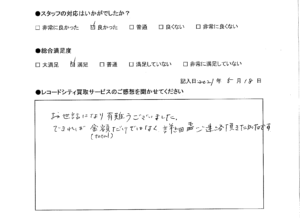 ●スタッフの対応はいかがでしたか?
□ 非常に良かった ☑ 良かった □ 普通 □ 良くない □ 非常に良くない
●総合満足度
□ 大満足 ☑ 満足 □ 普通 □ 満足していない □ 非常に満足していない
記入日 2021年 8月 18日
●レコードシティ買取サービスのご感想を聞かせてください
お世話になり有難うございました。
できれば金額だけではなく
(total)